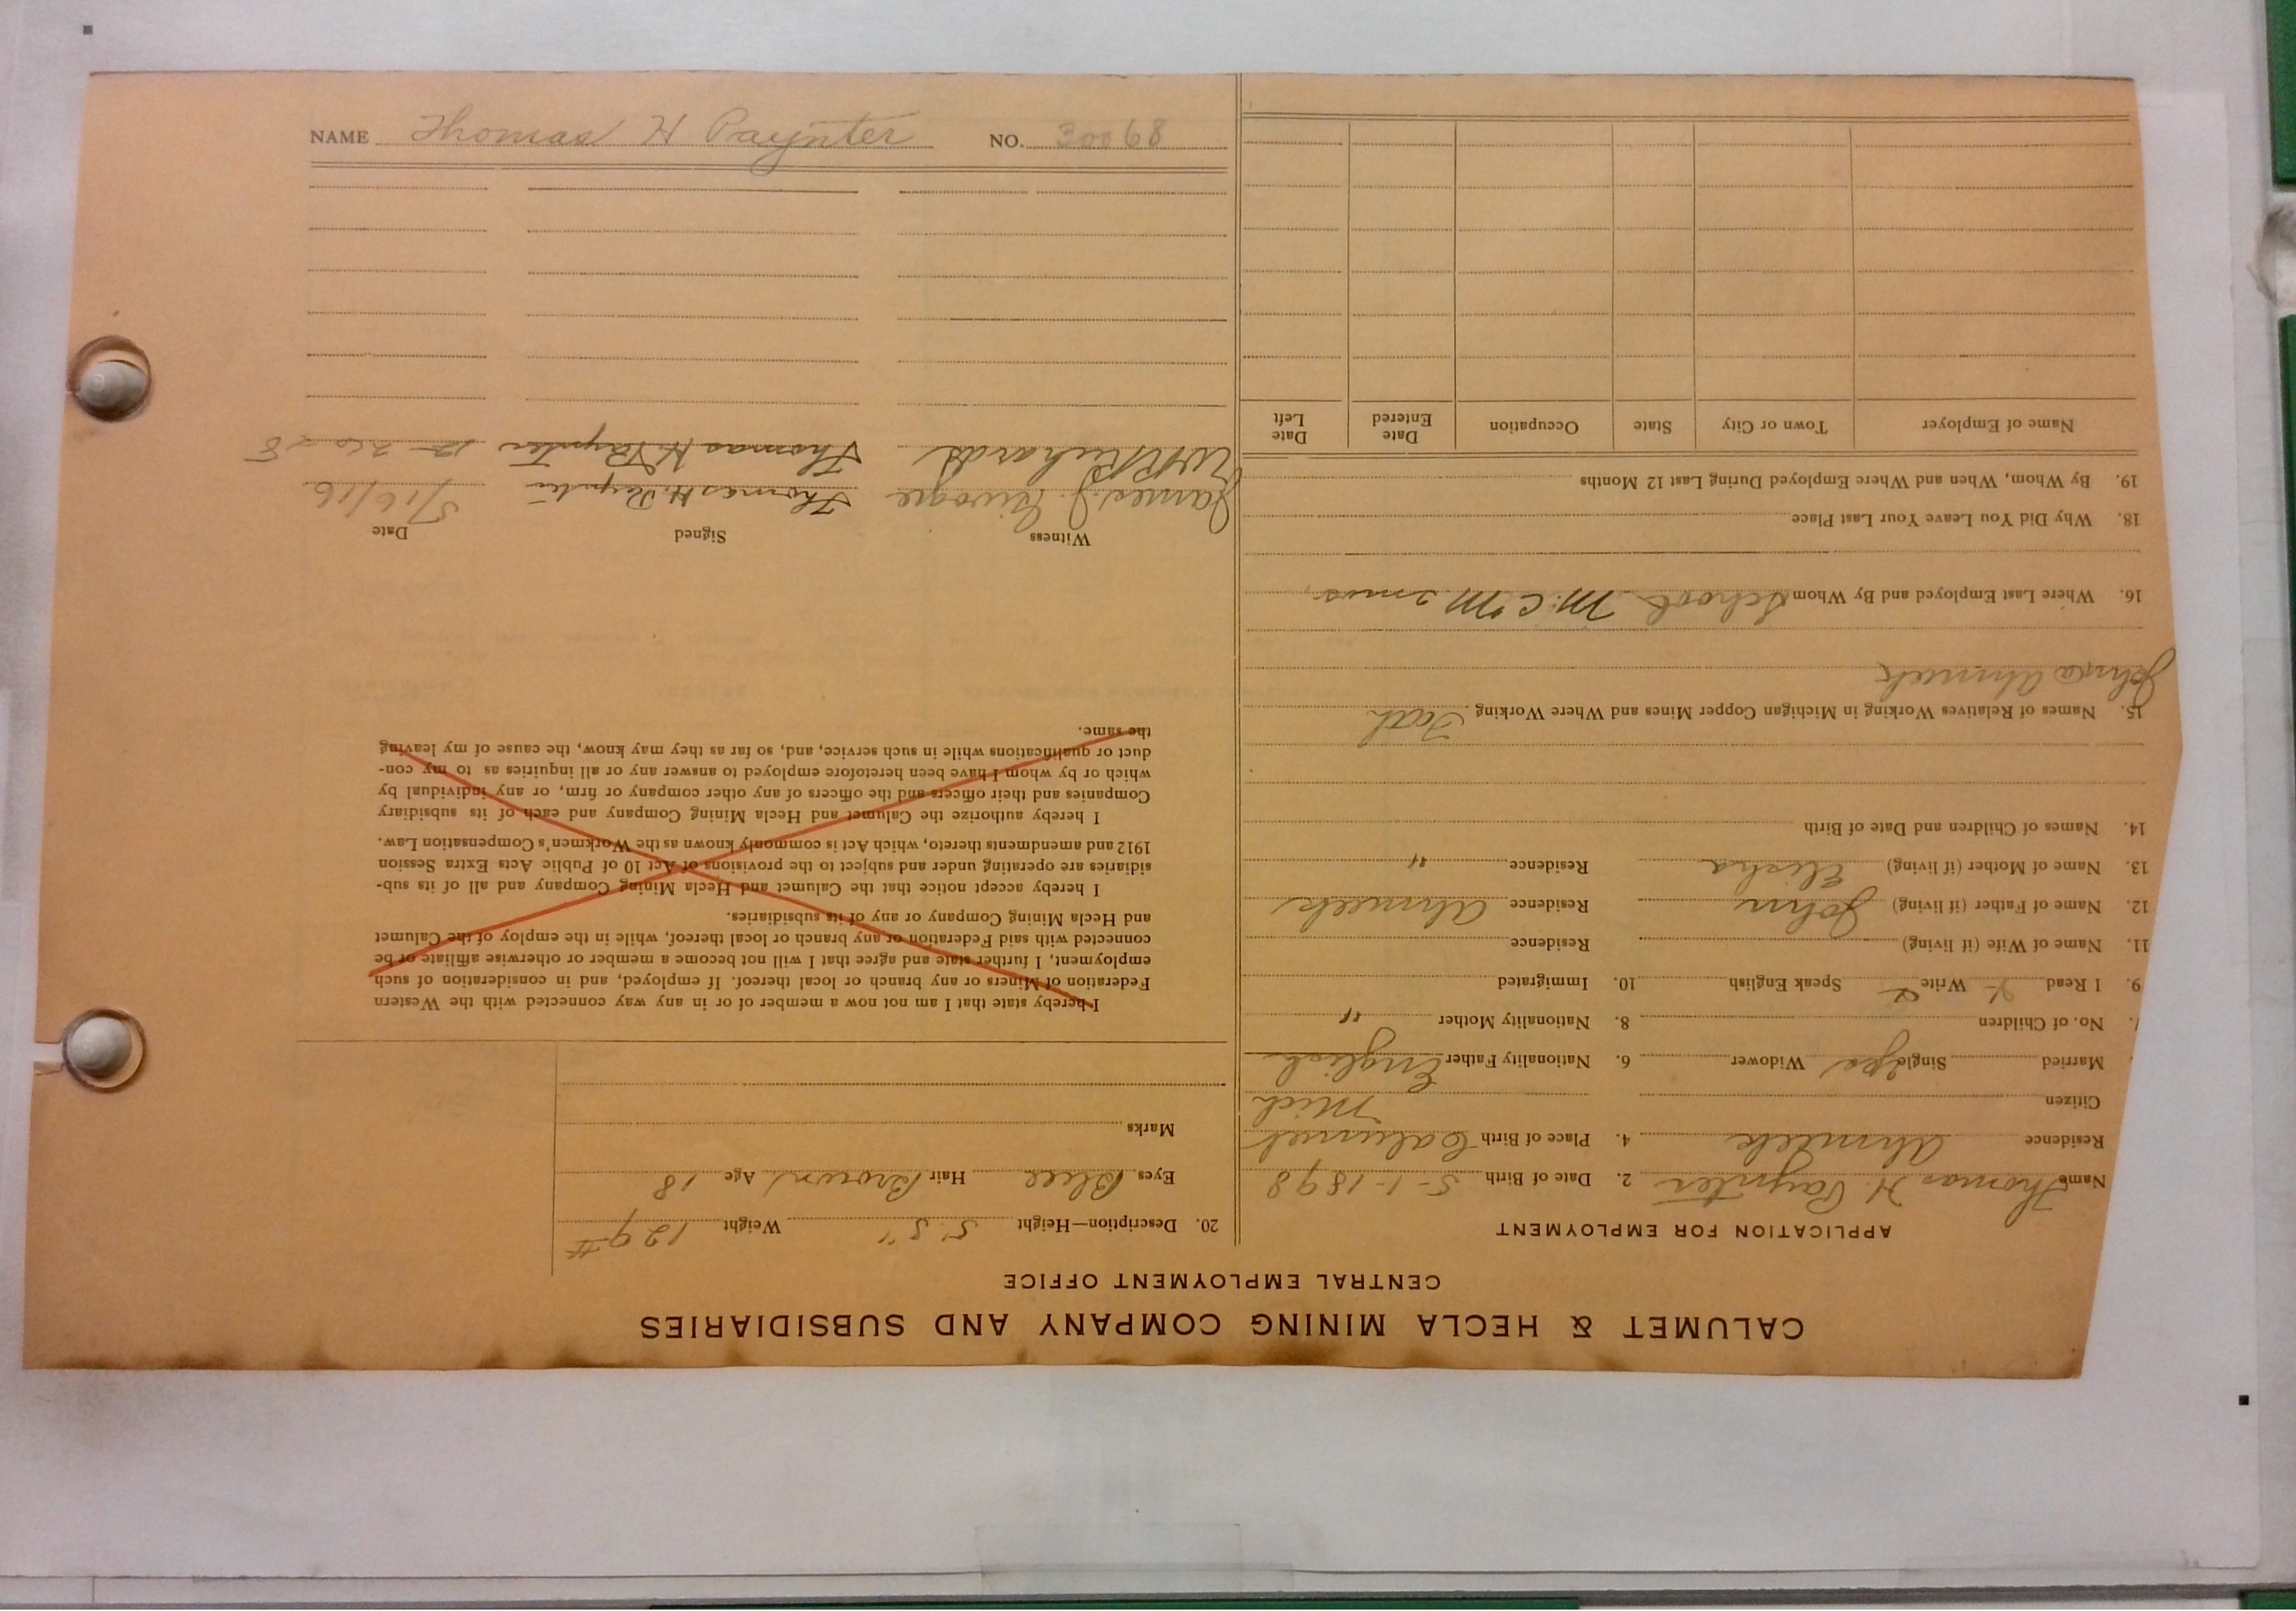 CALUMET & HECLA MINING COMPANY AND SUBSIDIARIES
CENTRAL EMPLOYMENT OFFICE
APPLICATION FOR EMPLOYMENT
Name Thomas H. Paynter 2. Date of Birth 5-1-1898
Residence Ahmeek 4. Place of Birth Calumet
Citizen Mich
Married Single yes Widower 6. Nationality Father English
No. of Children 8. Nationality Mother "
9. I Read Write Speak English 10. Immigrated
11. Name of Wife (if living) Residence
12. Name of Father (if living) John Residence Ahmeek
13. Name of Mother (if living) Elisha Residence "
14. Names of Children and Date of Birth
15. Names of Relatives Working in Michigan Copper Mines and Where Working Fath
Ahmeek
16. Where Last Employed and By Whom School M. C M
18. Why Did You Leave Your Last Place
19. By Whom, When and Where Employed During Last 12 Months
Name of Employer Town or City State Occupation Date Entered Date Left
20. Description—Height 5' 5" Weight 129 #
Eyes Blue Hair Brown Age 18
Marks
I hereby state that I am not now a member of or in any way connected with the Western
Federation of Miners or any branch or local thereof. If employed, and in consideration of such
employment, I further state and agree that I will not become a member or otherwise affiliate or be
connected with said Federation or any branch or local thereof, while in the employ of the Calumet
and Hecla Mining Company or any of its subsidiaries.
I hereby accept notice that the Calumet and Hecla Mining Company and all of its sub-
sidiaries are operating under and subject to the provisions of Act 10 of Public Acts Extra Session
1912 and amendments thereto, which Act is commonly known as the Workmen's Compensation Law.
I hereby authorize the Calumet and Hecla Mining Company and each of its subsidiary
Companies and their officers and the officers of any other company or firm, or any individual by
which or by whom I have been heretofore employed to answer any or all inquiries as to my con-
duct or qualifications while in such service, and, so far as they may know, the cause of my leaving
the same.
Witness Signed Date
James J. Thomas H. Paynter 5/16/16
W Richards Thomas H. Paynter 12-26-
NAME Thomas H Paynter NO. 30068